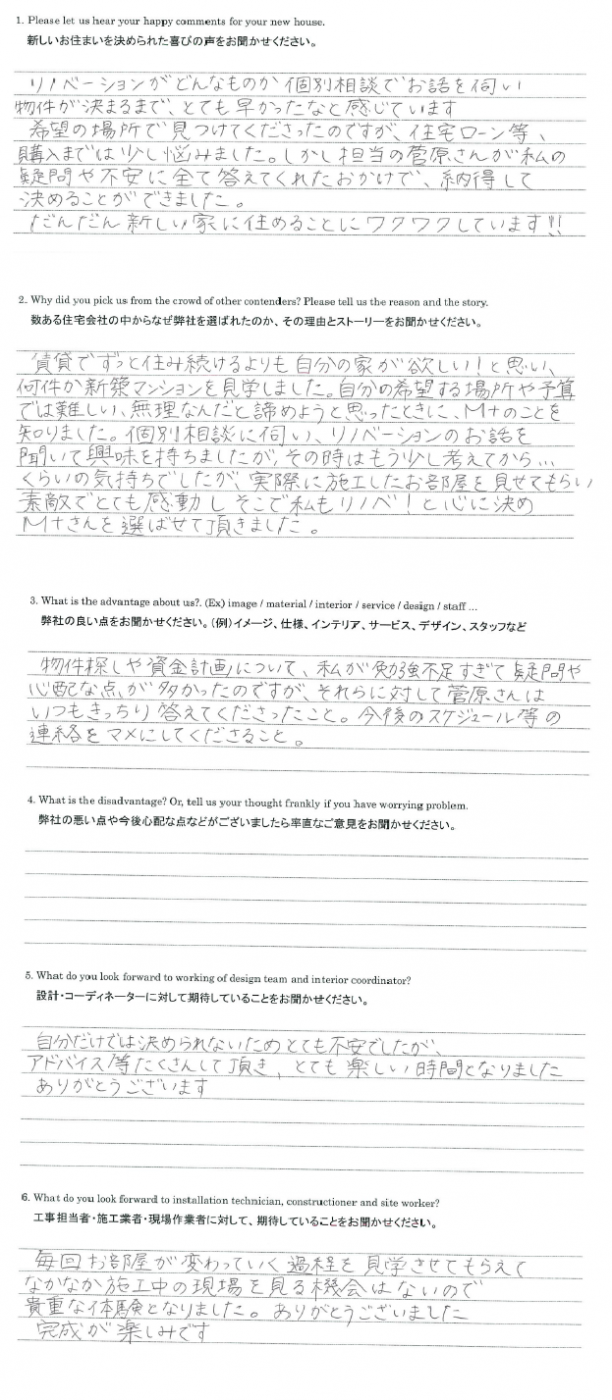 1. Please let us hear your happy comments for your new house.
新しいお住まいを決められた喜びの声をお聞かせください。
リノベーションがどんなものか個別相談でお話を伺い
物件が決まるまで、とても早かったなと感じています
希望の場所で見つけてくださったのですが、住宅ローン等、
購入までは少し悩みました。しかし担当の菅原さんが私の
疑問や不安に全て答えてくれたおかげで、納得して
決めることができました。
だんだん新しい家に住めることにワクワクしています!!
2. Why did you pick us from the crowd of other contenders? Please tell us the reason and the story.
数ある住宅会社の中からなぜ弊社を選ばれたのか、その理由とストーリーをお聞かせください。
賃貸でずっと住み続けるよりも自分の家が欲しい!と思い、
何件か新築マンションを見学しました。自分の希望する場所や予算
では難しい、無理なんだと諦めようと思ったときに、M+のことを
知りました。個別相談に伺い、リノベーションのお話を
聞いて興味を持ちましたが、その時はもう少し考えてから…
くらいの気持ちでしたが、実際に施工したお部屋を見せてもらい
素敵でとても感動し そこで私もリノベ!と心に決め
M+さんを選ばせて頂きました。
3. What is the advantage about us?. (Ex) image / material / interior / service / design / staff ...
弊社の良い点をお聞かせください。(例)イメージ、仕様、インテリア、サービス、デザイン、スタッフなど
物件探しや資金計画について、私が勉強不足すぎて疑問や
心配な点が多かったのですが、それらに対して菅原さんは
いつもきっちり答えてくださったこと。今後のスケジュール等の
連絡をマメにしてくださること。
4. What is the disadvantage? Or, tell us your thought frankly if you have worrying problem.
弊社の悪い点や今後心配な点などがございましたら率直なご意見をお聞かせください。
5. What do you look forward to working of design team and interior coordinator?
設計・コーディネーターに対して期待していることをお聞かせください。
自分だけでは決められないためとても不安でしたが、
アドバイス等たくさんして頂き、とても楽しい時間となりました
ありがとうございます
6. What do you look forward to installation technician, constructioner and site worker?
工事担当者・施工業者・現場作業者に対して、期待していることをお聞かせください。
毎回お部屋が変わっていく過程を見学させてもらえて
なかなか施工中の現場を見る機会はないので
貴重な体験となりました。ありがとうございました
完成が楽しみです